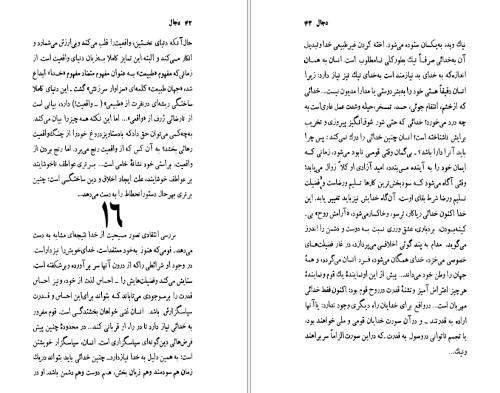 ۴۲ دجال
حال آنکه دنیای نخستین، واقعیت را قلب می‌کند و بی‌ارزش می‌شمارد و
نفی می‌کند، و البته این تمایز کاملا به‌زیان دنیای واقعیت است. از
زمانی‌که مفهوم «طبیعت» به عنوان مفهوم متضاد مفهوم «خدا» ابداع
شد، «جهان طبیعت» کلمه‌ای «سزاوار سرزنش» گشت ــ این دنیای کاملا
ساختگی ریشه‌ای درنفرت از «طبیعی» ( ــ واقعیت!) دارد، بیانی است
از نارضائی ژرف از «واقعی»... اما این نکته همه‌چیز را بیان می‌کند.
به‌چه‌کسی می‌توان حق داد که بادستاویز دروغ خود را از چنگ واقعیت
رهائی بخشد؟ به آن کس که از واقعیت رنج می‌برد. اما رنج بردن از
واقعیت، براستی خود نشانهٔ خامی است... برتری عواطف ناخوشایند
بر عواطف خوشایند، علت ایجاد اخلاق و دین ساختگی است: چنین
برتری به‌هر حال دستور انحطاط را به دست می‌دهد...
۱۶
بررسی انتقادی تصور مسیحیت از خدا نتیجه‌ای مشابه به دست
می‌دهد. قومی‌که هنوز به‌خود معتقداست، خدای‌خویش را نیز داراست.
در وجود او شرائطی راکه از درون آنها سر برآورده و برشکفته است،
ستایش می‌کند و فضیلت‌هایش را ــ احساس لذت از خود، و نیز احساس
قدرت را برموجودی می‌تاباند که بتواند برای این احساس و قدرت
شکرگزارش باشد. انسان غنی خواهان بخشندگی است. قوم مغرور
به خدائی نیاز دارد تا در راه او قربانی کند... در محدودهٔ چنین پیش
فرض‌هائی دین گونه‌ای سپاسگزاری است. انسان، سپاسگزار خویش
است: به همین دلیل به خدا نیازدارد. چنین خدائی باید بتواند دریک
زمان هم سودمند وهم زیان بخش، هم دوست وهم دشمن باشد. او در
دجال ۴۳
نیک وبد، به‌یکسان ستوده می‌شود. اخته کردن غیرطبیعی خدا وتبدیل
آن به‌خدائی صرفاً نیک به‌طورکلی نامطلوب است. انسان به همان
اندازه‌که به خدای بد نیازمند است به‌خدای نیک نیز نیاز دارد: زیرا
انسان دقیقاً هستی خود را به‌بشردوستی یا مدارا مدیون نیست... خدائی
که ازخشم، انتقام جوئی، حسد، تمسخر، حیله و شدت عمل عاری‌است به
چه درد می‌خورد؟ خدائی که حتی شور شوق‌انگیز پیروزی و تخریب
برایش ناشناخته است؟ انسان چنین خدائی را درک نمی‌کند: پس چرا
باید آنرا دارا باشد؟ ــ بی‌گمان وقتی قومی نابود می‌شود، زمانی که
ایمان خود را به آینده می‌بیند، امید آزادی او کلاً زوال می‌یابد؛
وقتی آگاه می‌شود که سودبخش‌ترین کارها تسلیم ورضاست و فضیلت
تسلیم ورضا شرط بقای است. آن‌گاه خدایش نیز باید تغییر یابد. این
خدا اکنون خدائی ریاکار، ترسو، وخاکسار می‌شود، «آرامش روح»، بی.
کینه‌بودن، بردباری، عشق ورزی نسبت به دوست و دشمن را اندرز
می‌گوید. مدام به پند گوئی اخلاقی می‌پردازد، در غار فضیلت‌های
خصوصی می‌خزد، خدای همگان می‌شود، فرد انسان می‌گردد، و همهٔ
جهان را وطن خود می‌داند... پیش از این او نمایندهٔ یک قوم و نمایندهٔ
هرچیز اعتراض آمیز و تشنهٔ قدرت در روح قوم بود؛ اکنون فقط خدائی
مهربان است... درواقع برای خدایان راه دیگری وجود ندارد: یا آنها
اراده به قدرتند ــ و در آن صورت خدایان قومی و ملی خواهند بود،
یا تجسم ناتوانی در وصول به قدرت که دراین صورت الزاماً سربراهند
و نیک...